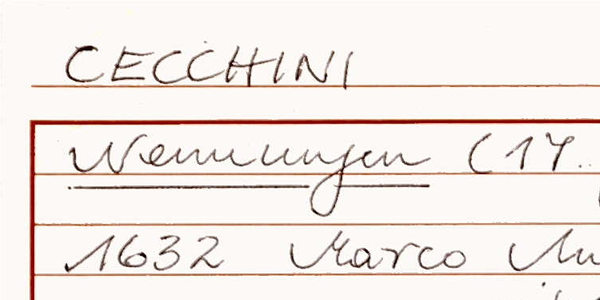 CECCHINI
Nennungen (17..
1632 Marco